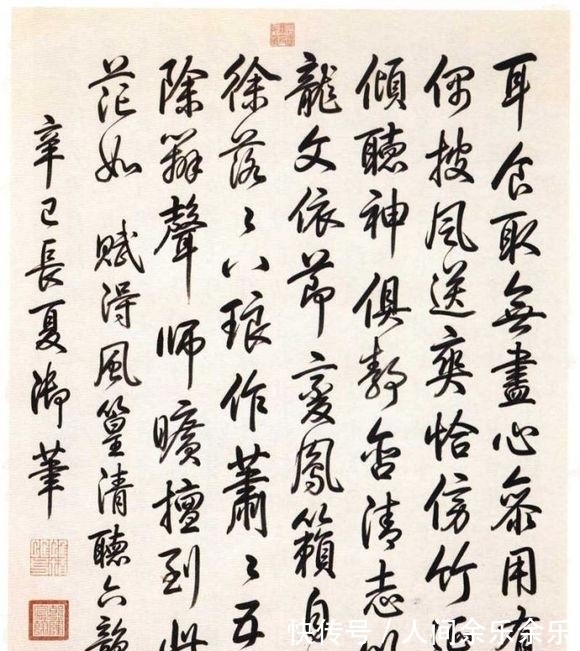 耳食取無盡心參用有
偶披風送爽恰傍竹
傾聽神俱靜含清志
龍文依節變鳳籟自
徐落〻八琅作蕭〻五
除辨聲師曠擅到此
茫如 賦得風篁清聽六韻
辛巳長夏御筆
快传号/人间余乐余乐